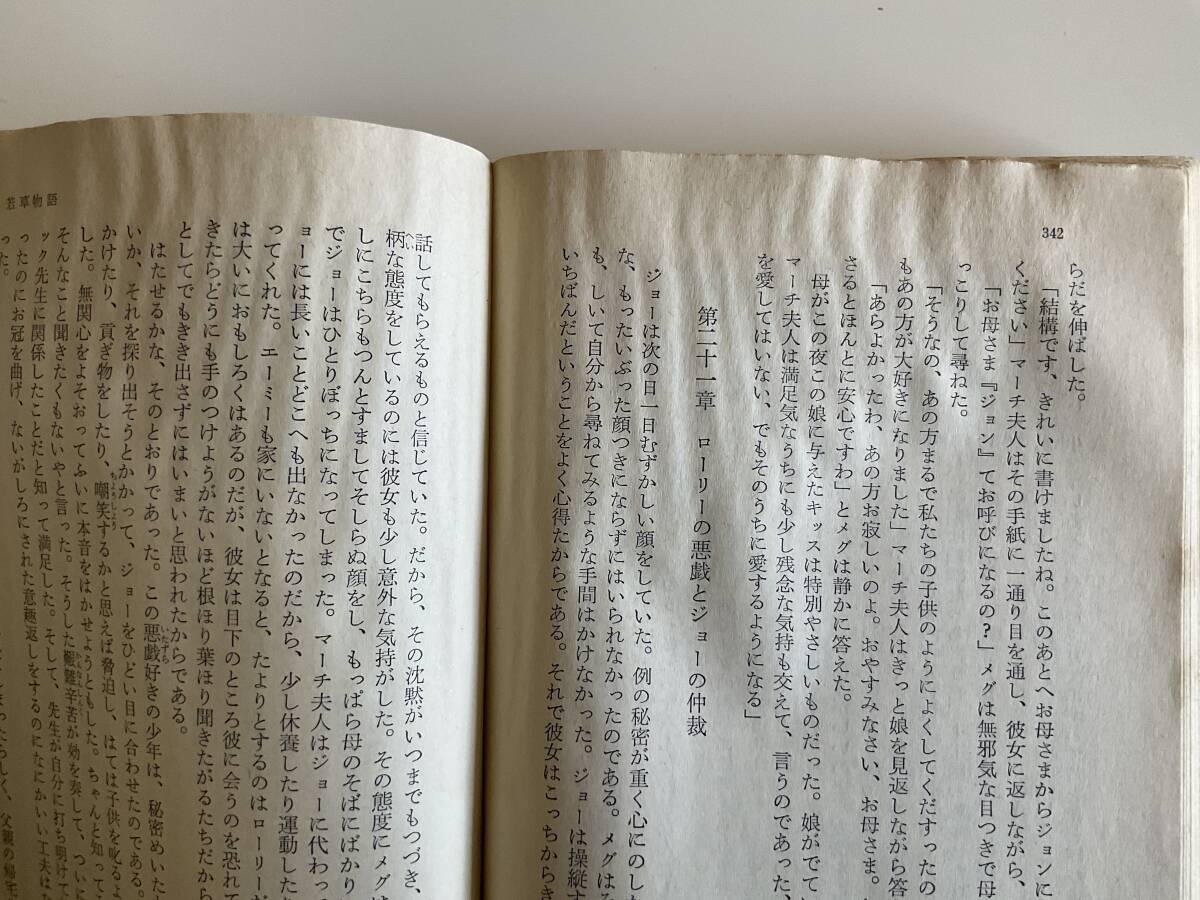 342
らだを伸ばした。
「結構です、きれいに書けましたね。このあとへお母さまからジョンに
ください」マーチ夫人はその手紙に一通り目を通し、彼女に返しながら、
「お母さま『ジョン』てお呼びになるの？」メグは無邪気な目つきで母
っこりして尋ねた。
「そうなの、あの方まるで私たちの子供のようによくしてくだすったの
もあの方が大好きになりました」マーチ夫人はきっと娘を見返しながら答
「あらよかったわ、あの方お寂しいのよ。おやすみなさい、お母さま。
さるとほんとに安心ですわ」とメグは静かに答えた。
母がこの夜この娘に与えたキッスは特別やさしいものだった。娘がでて
マーチ夫人は満足気なうちにも少し残念な気持も交えて、言うのであった、
を愛してはいない、でもそのうちに愛するようになる」
第二十一章 ローリーの悪戯とジョーの仲裁
ジョーは次の日一日むずかしい顔をしていた。例の秘密が重く心にのし
な、もったいぶった顔つきにならずにはいられなかったのである。メグは
も、しいて自分から尋ねてみるような手間はかけなかった。ジョーは操縦す
いちばんだということをよく心得たからである。それで彼女はこっちから
若草物語
話してもらえるものと信じていた。だから、その沈黙がいつまでもつづき、
柄な態度をしているのには彼女も少し意外な気持がした。その態度にメグは
しにこちらもつんとすましてそしらぬ顔をし、もっぱら母のそばにばかり
でジョーはひとりぼっちになってしまった。マーチ夫人はジョーに代わっ
ってくれた。エーミーも家にいないとなると、たよりとするのはローリーだ
ョーには長いことどこへも出なかったのだから、少し休養したり運動した
は大いにおもしろくはあるのだが、彼女は目下のところ彼に会うのを恐れて
きたらどうにも手のつけようがないほど根ほり葉ほり聞きたがるたちだから
としてでもきき出さずにはいまいと思われたからである。
はたせるかな、そのとおりであった。この悪戯好きの少年は、秘密めいた
いか、それを探り出そうとかかって、ジョーをひどい目に合わせたのである。
かけたり、貢ぎ物をしたり、嘲笑するかと思えば脅迫し、はては子供を叱るよ
した。無関心をよそおってふいに本音をはかせようともした。ちゃんと知って
そんなこと聞きたくもないやと言った。そうした艱難辛苦が効を奏して、つい
ック先生に関係したことだと知って満足した。そして、先生が自分に打ち明けて
ったのにお冠を曲げ、ないがしろにされた意趣返しをするのになにかいい工夫は
った。